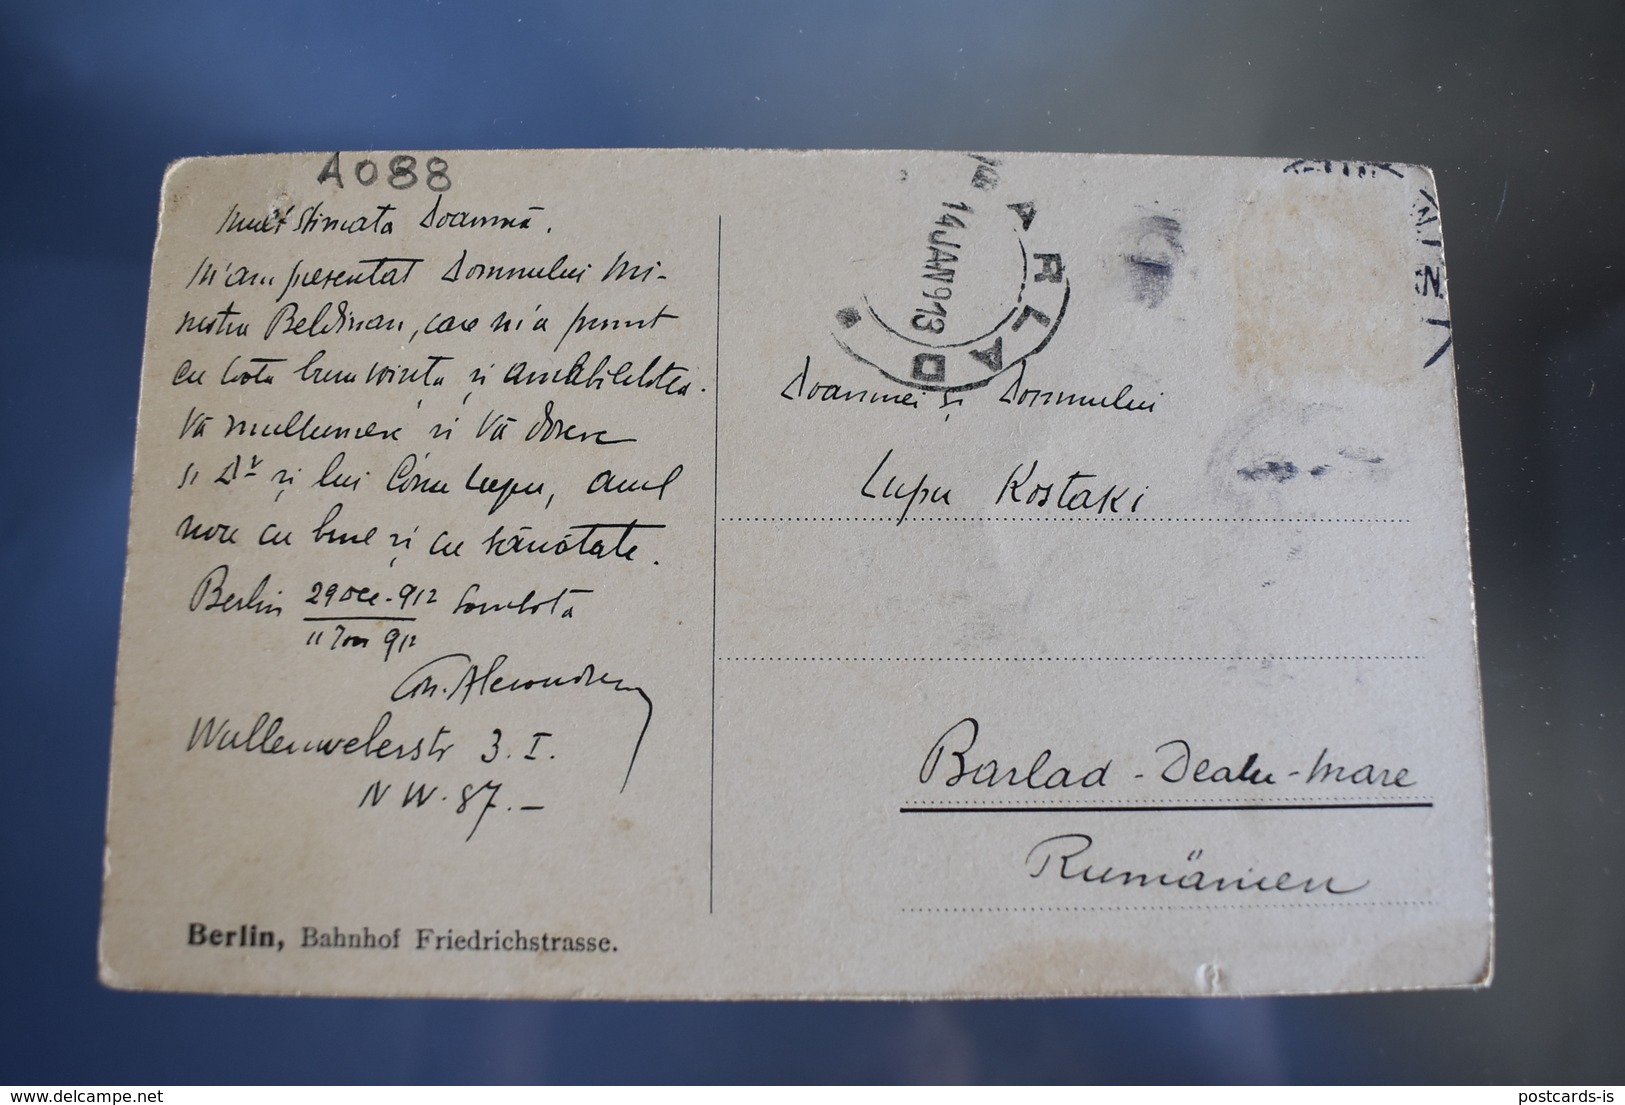 A088
Mult stimata Doamnă.
M'am presentat Domnului Mi-
nistru Beldiman, care m'a primit
cu toată bunavointa și amabilitatea.
Vă mulțumesc și Vă doresc
și Dr și lui Conu Lupu, anul
nou cu bine și cu sănătate.
Berlin 29 Dec. 912 Sambătă
11 Ian 912
Wullenweberstr 3. I.
NW. 87. —
Berlin, Bahnhof Friedrichstrasse.
14 JAN 913
ARLAD
Doamnei și Domnului
Lupu Kostaki
Barlad - Dealu - Mare
Rumänien
postcards-is